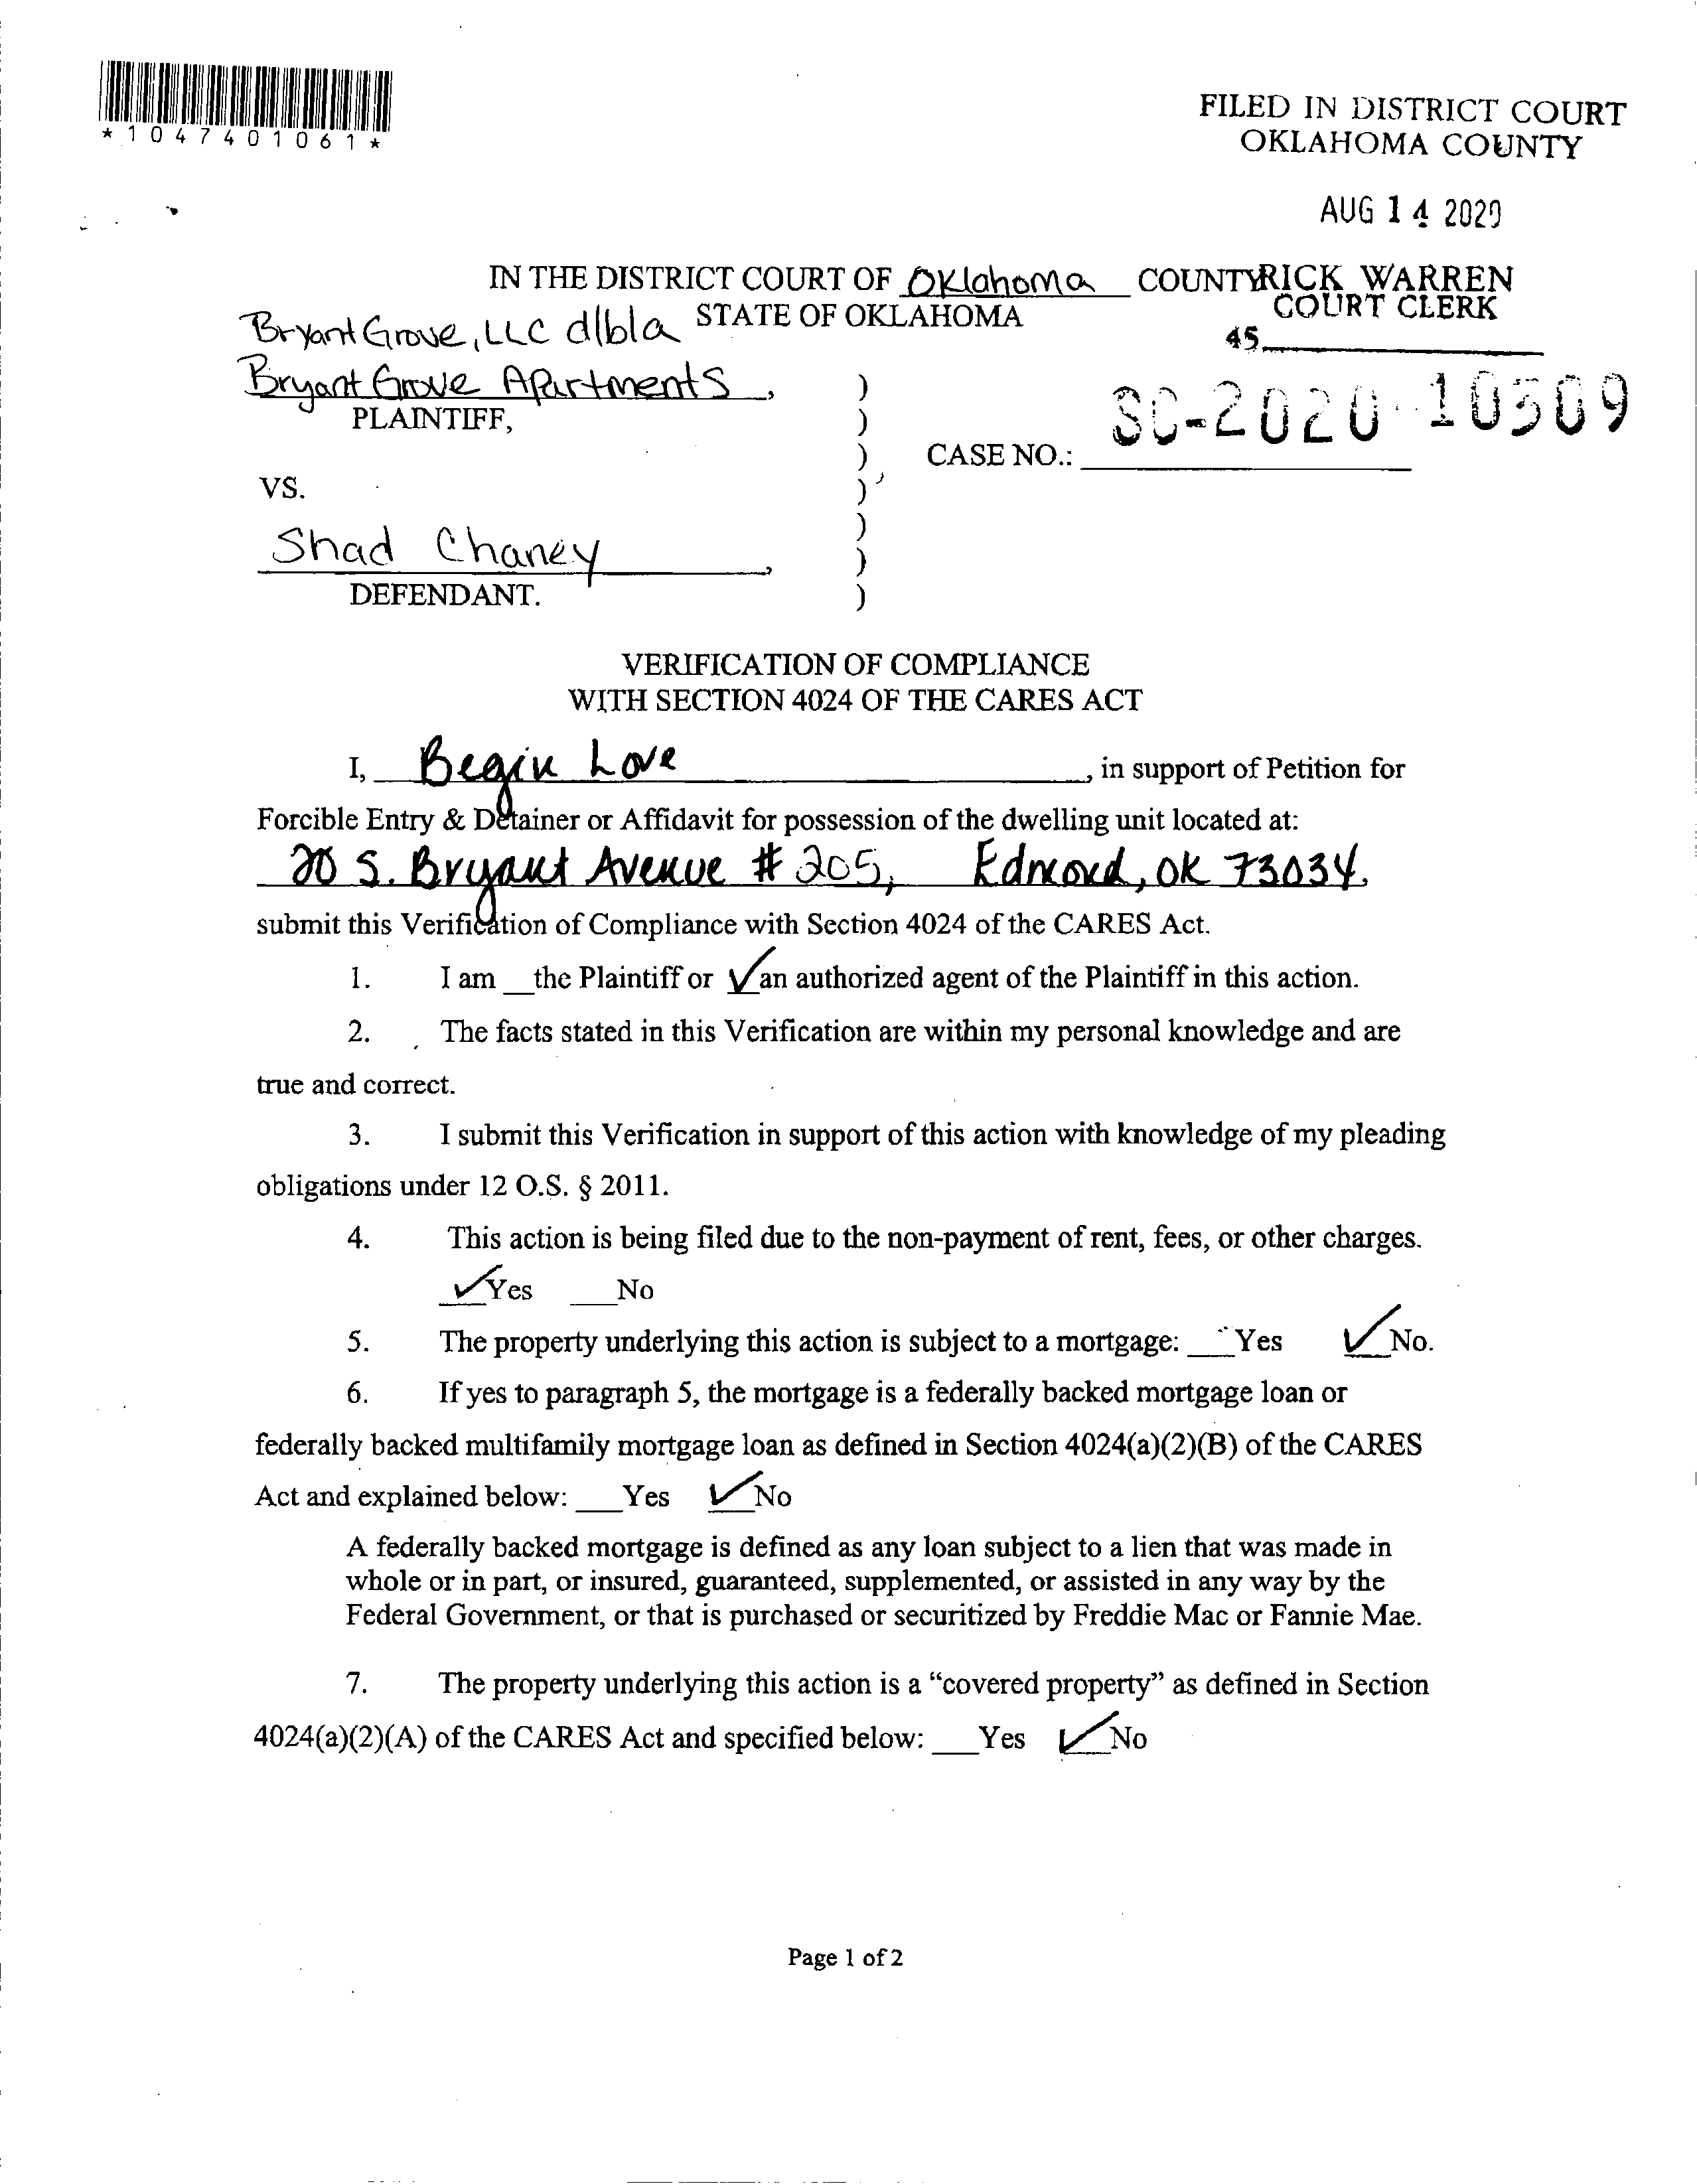 *1047401061*
FILED IN DISTRICT COURT
OKLAHOMA COUNTY
AUG 14 2020
IN THE DISTRICT COURT OF Oklahoma COUNTY
STATE OF OKLAHOMA
RICK WARREN
COURT CLERK
45
Bryant Grove, LLC d/b/a
Bryant Grove Apartments, )
PLAINTIFF, )
) CASE NO.: SC-2020 10509
VS. )
)
Shad Chaney, )
DEFENDANT. )
VERIFICATION OF COMPLIANCE
WITH SECTION 4024 OF THE CARES ACT
I, Begin Love, in support of Petition for
Forcible Entry & Detainer or Affidavit for possession of the dwelling unit located at:
20 S. Bryant Avenue # 205, Edmond, OK 73034.
submit this Verification of Compliance with Section 4024 of the CARES Act.
1. I am __the Plaintiff or ✓an authorized agent of the Plaintiff in this action.
2. The facts stated in this Verification are within my personal knowledge and are
true and correct.
3. I submit this Verification in support of this action with knowledge of my pleading
obligations under 12 O.S. § 2011.
4. This action is being filed due to the non-payment of rent, fees, or other charges.
✓Yes ___No
5. The property underlying this action is subject to a mortgage: ___Yes ✓No.
6. If yes to paragraph 5, the mortgage is a federally backed mortgage loan or
federally backed multifamily mortgage loan as defined in Section 4024(a)(2)(B) of the CARES
Act and explained below: ___Yes ✓No
A federally backed mortgage is defined as any loan subject to a lien that was made in
whole or in part, or insured, guaranteed, supplemented, or assisted in any way by the
Federal Government, or that is purchased or securitized by Freddie Mac or Fannie Mae.
7. The property underlying this action is a “covered property” as defined in Section
4024(a)(2)(A) of the CARES Act and specified below: ___Yes ✓No
Page 1 of 2